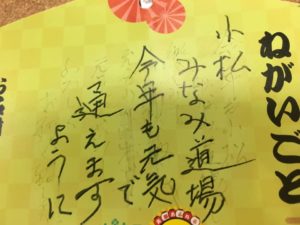 ねがいごと
小松
みなみ道場
今年も元気で
通えます
ように